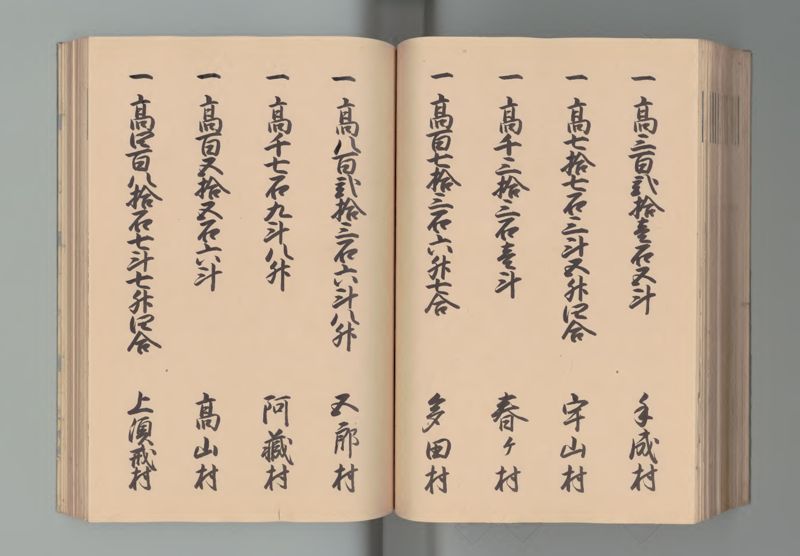 一 高三百弐拾壱石五斗 手成村
一 高七拾七石三斗五升四合 宇山村
一 高千三拾三石壱斗 春ケ村
一 高百七拾三石六升七合 多田村
一 高八百弐拾三石六斗八升 五郎村
一 高千七石九斗八升 阿藏村
一 高百五拾五石六斗 高山村
一 高四百八拾石七斗七升四合 上須戒村